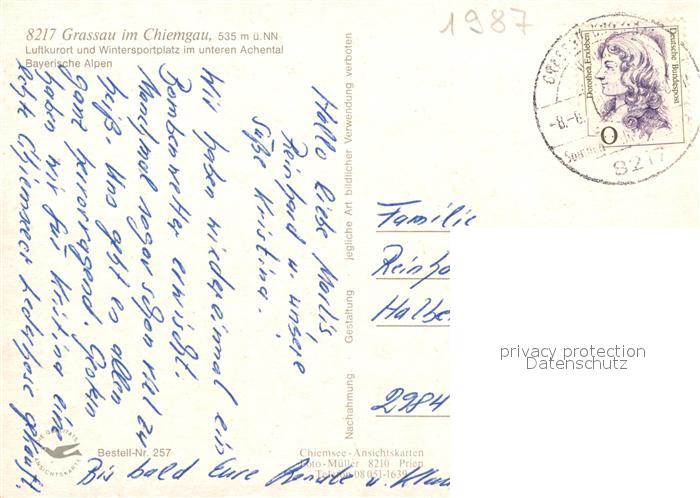 8217 Grassau im Chiemgau, 535 m ü. NN
Luftkurort und Wintersportplatz im unteren Achental
Bayerische Alpen
1987
Dorothea Erxleben
Deutsche Bundespost
-8.-8.
8217
Hallo liebe
Reinhard u. unsere
süße Kristina.
Wir haben wiedereinmal ein
Bombenwetter erwischt.
Manchmal sogar schon viel zu
heiß. Uns geht es allen
ganz hervorragend. Gestern
haben wir für Kristina eine
echte Chiemseer Lederhose gekauft.
Bis bald Eure Renate u.
Nachahmung · Gestaltung · jegliche Art bildlicher Verwendung verboten
Familie
Halbe
2984
privacy protection
Datenschutz
Bestell-Nr. 257
Chiemsee-Ansichtskarten
Foto-Müller 8210 Prien
Telefon 08051-1639